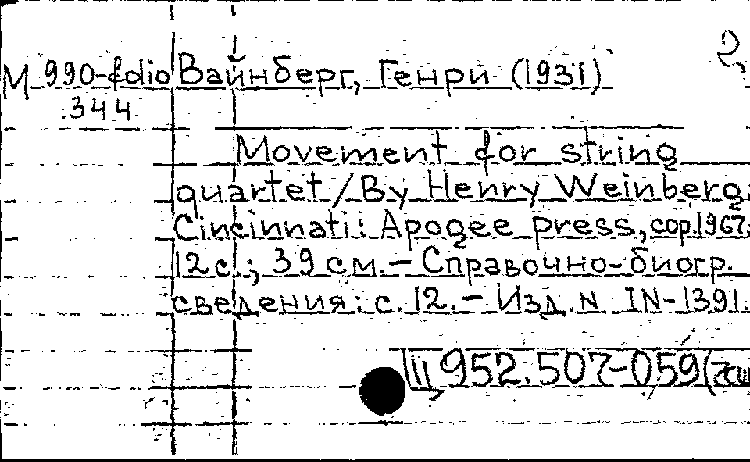 2.
M 990-folio Вайнберг, Генри (1931)
.344
Movement for string
quartet / By Henry Weinberg.
Cincinnati: Apogee press, cop.1967.
12 с.; 39 см. – Справочно-биогр.
сведения: с. 12. – Изд. N IN-1391.
Ц 952.507-059